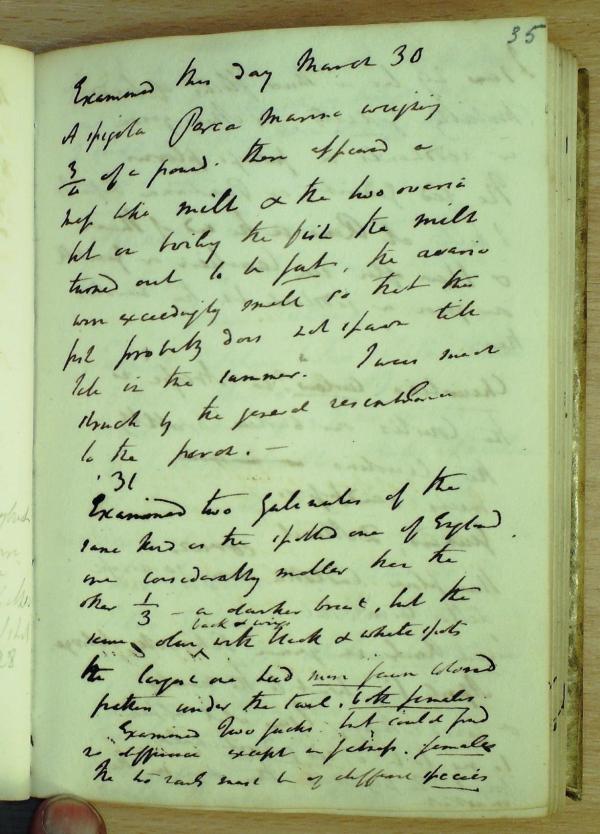 35
Examined this day March 30
A spigola Perca Marina weighing
3/4 of a pound. there appeared a
like milt & the two ovaria
but on boiling the fish the milt
turned out to be fat, the ovaria
were exceedingly small so that this
fish probably does not spawn till
late in the summer. I was much
struck by the general resemblance
to the perch. —
31
Examined two Galinules of the
same kind as the spotted one of England.
one considerably smaller than the
other 1/3 — a darker breast, but the
back & wings
same olive with black & white spots
the largest one had more fawn coloured
feathers under the tail, both females.
Examined Two Jacks. but could find
no difference except in fatness. females
The two snails must be of different species